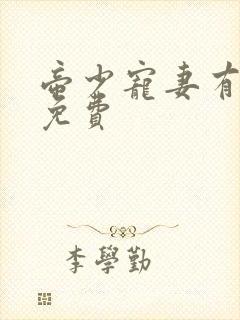 蛮少寵妻有
免費
李學勤